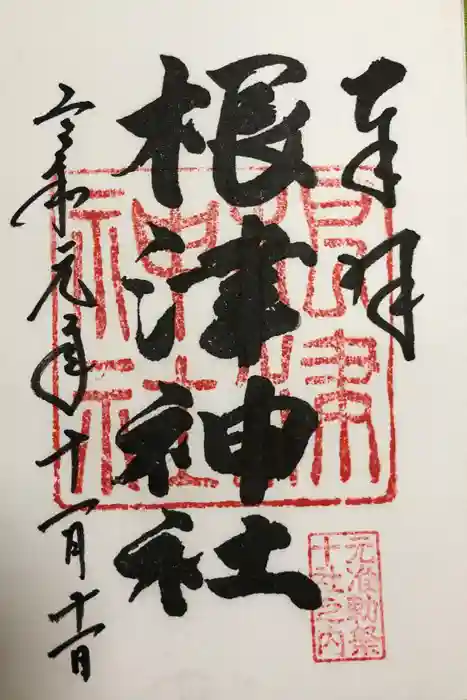 奉拝
根津神社
令和元年十一月十一日
根津神社
元准勅祭
十社之内